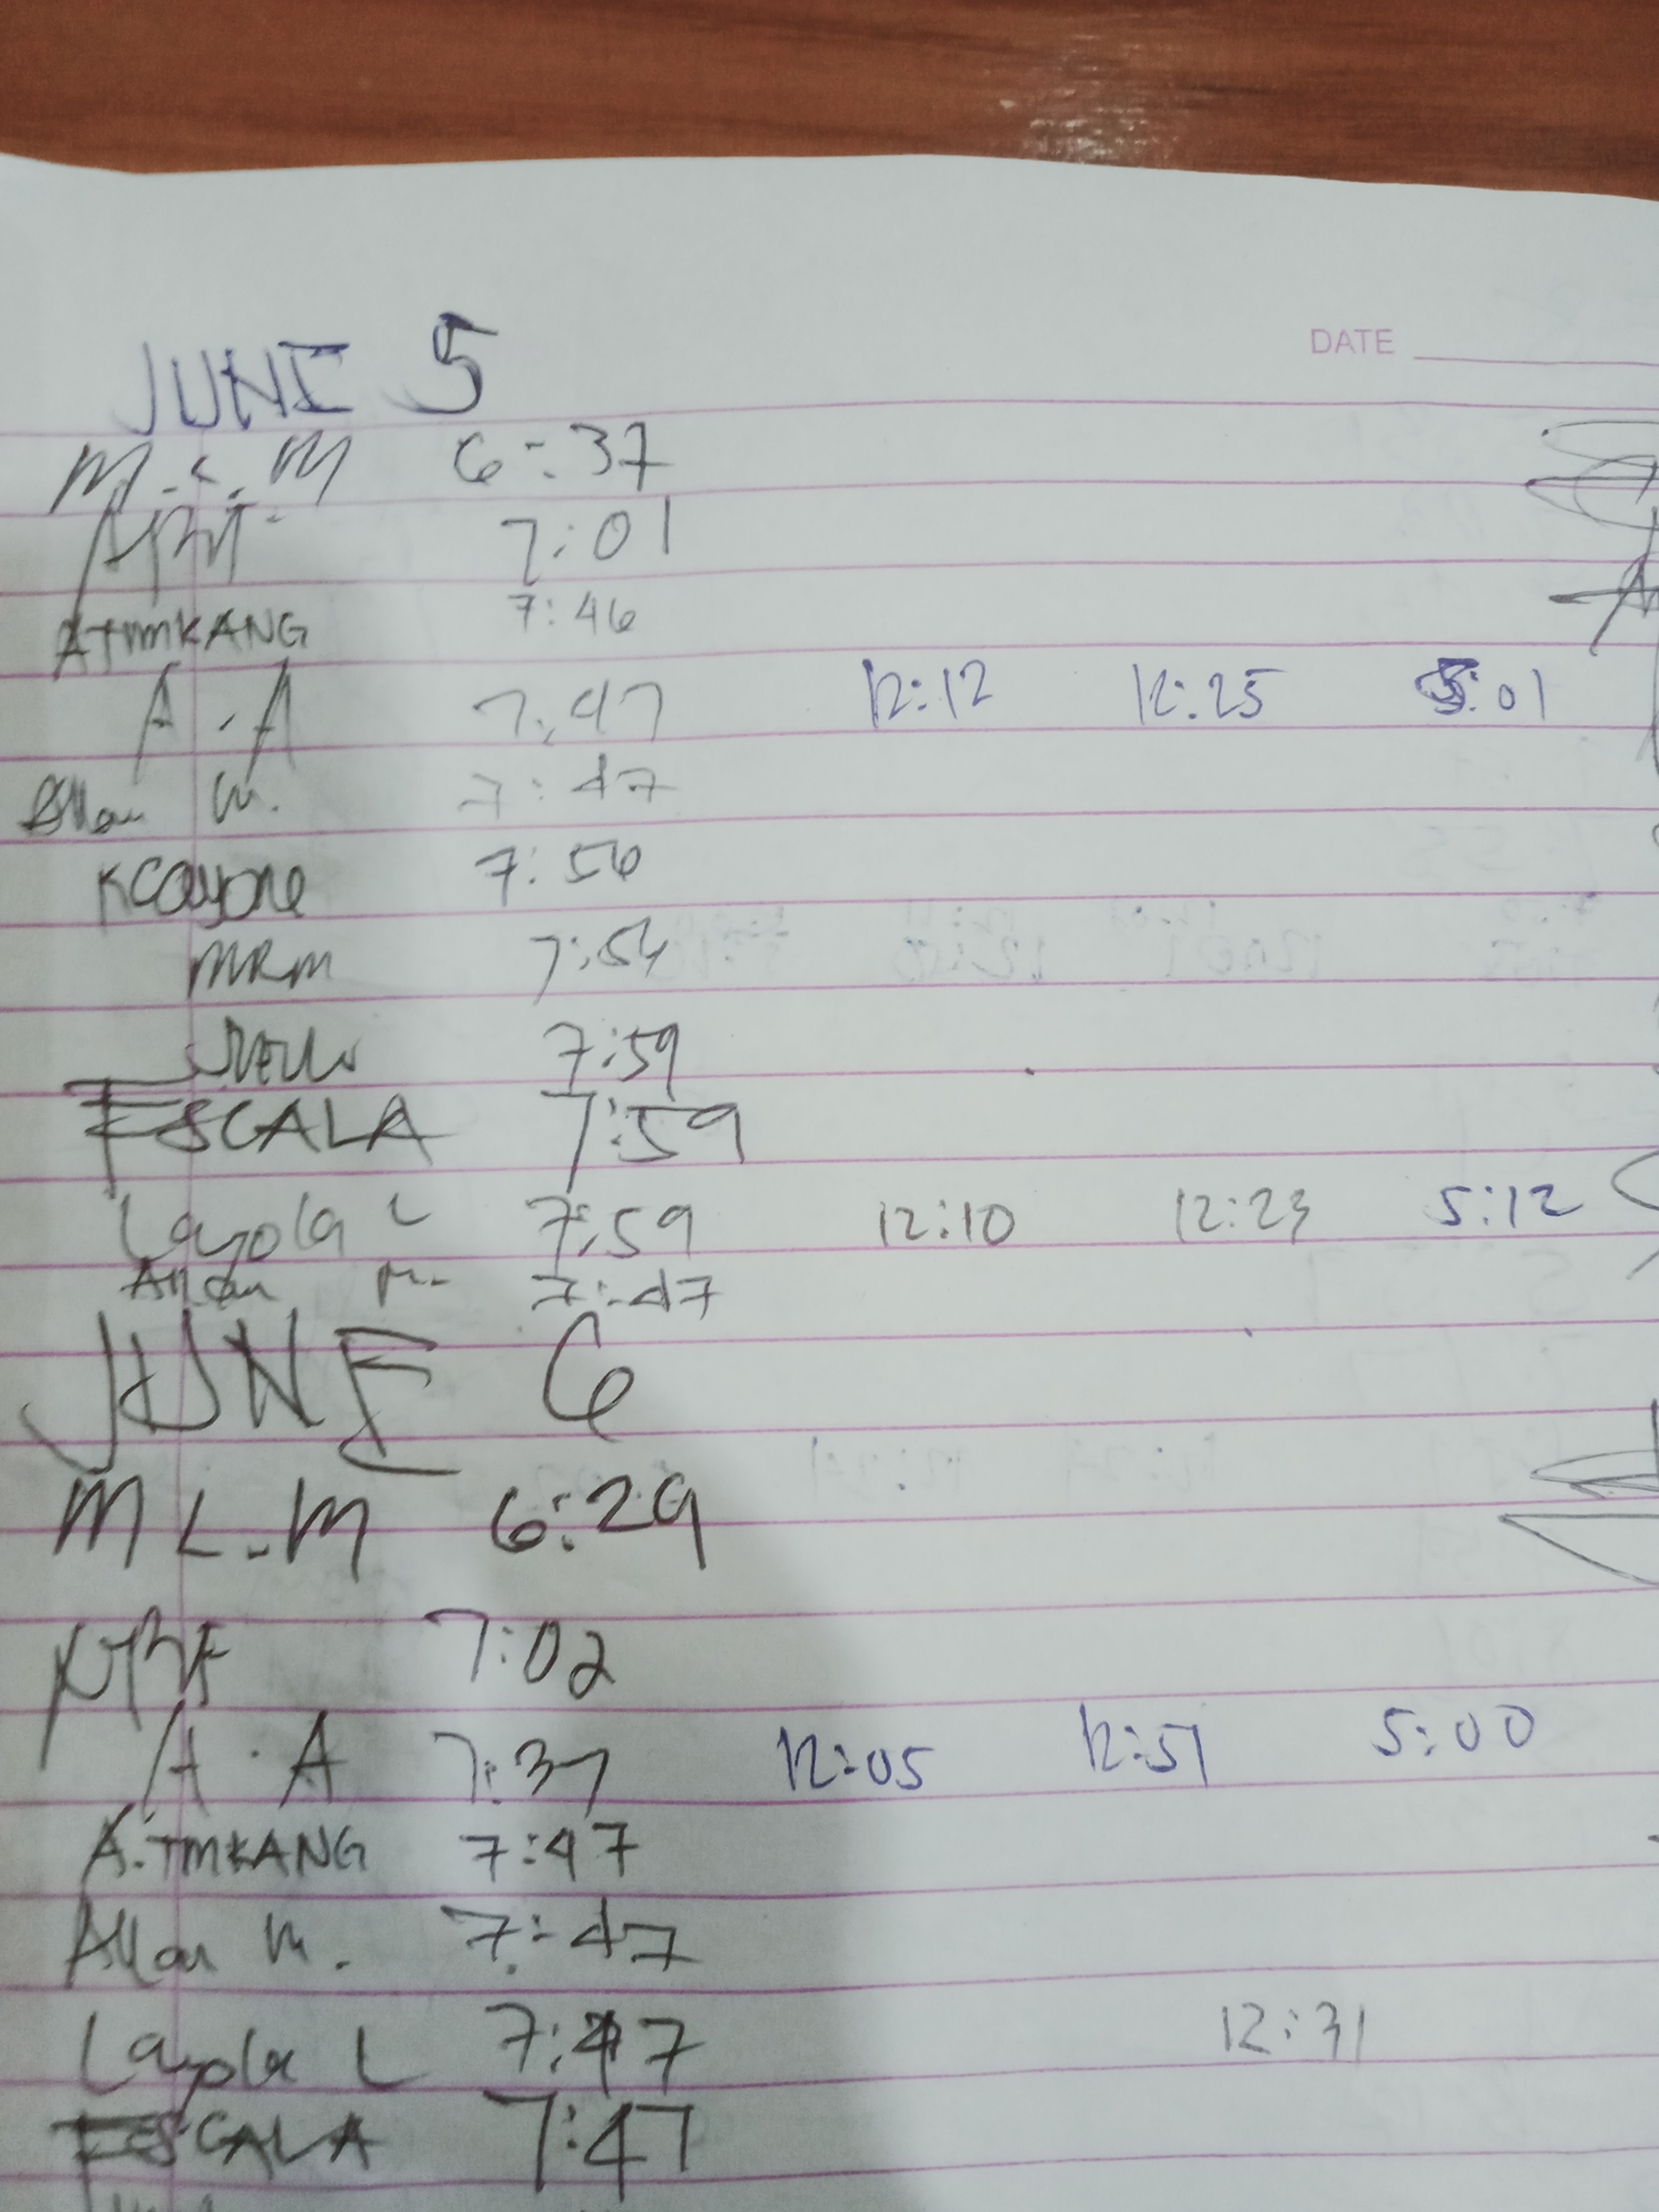 DATE
JUNE 5
M.L.M 6:37
7:01
ATIMKANG 7:46
A.A 7:47 12:12 12:25 5:01
Allan M. 7:47
KCayone 7:56
MRM 7:54
7:59
ESCALA 7:59
Layola L 7:59 12:10 12:23 5:12
Allan M. 7:47
JUNE 6
M L.M 6:29
7:02
A.A 7:37 12:05 12:51 5:00
A.TMKANG 7:47
Allan M. 7:47
Layola L 7:47 12:31
ESCALA 7:47